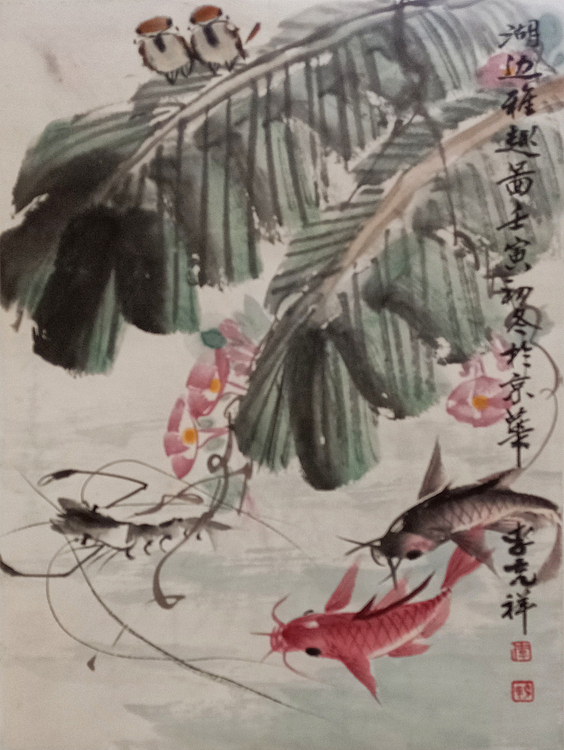 湖边雅趣图壬寅初冬於京华
李克祥